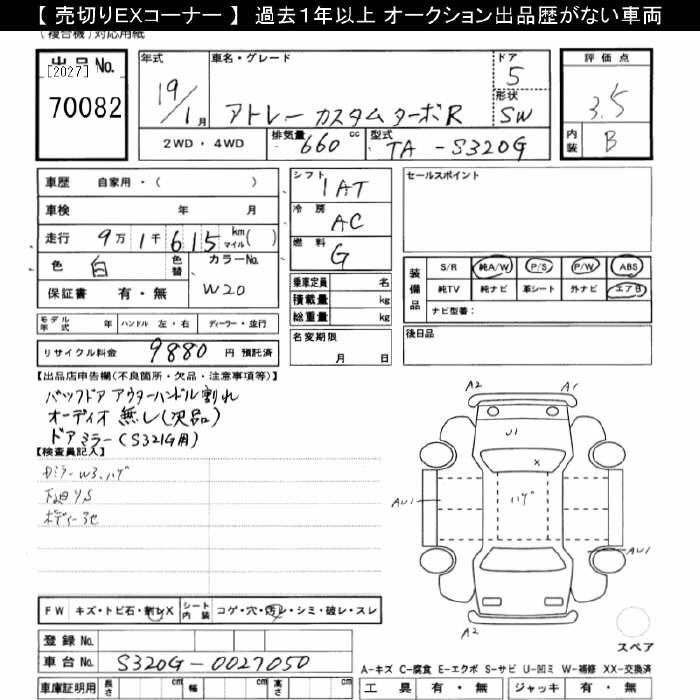 【 売切りEXコーナー 】 過去1年以上 オークション出品歴がない車両
(複合機)対応用紙
出品 No.
[2027]
70082
年式
19/1月
車名・グレード
アトレー カスタムターボR
ドア
5
形状
SW
評価点
3.5
内装
B
2WD ・ 4WD
排気量
660 cc
型式
TA - S320G
車歴 自家用・( )
車検 年 月
走行 9万 1千 615 km マイル( )
色 白 色替
カラーNo.
W20
保証書 有・無
シフト
1AT
冷房
AC
燃料
G
乗車定員 名
積載量 kg
総重量 kg
名変期限
月 日
セールスポイント
装備品
S/R 純A/W P/S P/W ABS
純TV 純ナビ 革シート 外ナビ エアB
ナビ型番:
後日品
モデル年式 年 ハンドル 左・右 ディーラー・並行
リサイクル料金 9880 円 預託済
【出品店申告欄(不良箇所・欠品・注意事項等)】
バックドア アウターハンドル割れ
オーディオ 無し(欠品)
ドアミラー(S321G用)
【検査員記入】
W3、ハゲ
下廻りS
ボディー
A2
A1
U1
X
ハゲ
AU1
AU1
A2
スペア
FW キズ・トビ石・割レX
シート内装 コゲ・穴・汚レ・シミ・破レ・スレ
登録 No.
車台 No. S320G-0027050
車庫証明用 長さ cm 幅 cm 高さ cm
A-キズ C-腐食 E-エクボ S-サビ U-凹ミ W-補修 XX-交換済
工具 有・無 ジャッキ 有・無